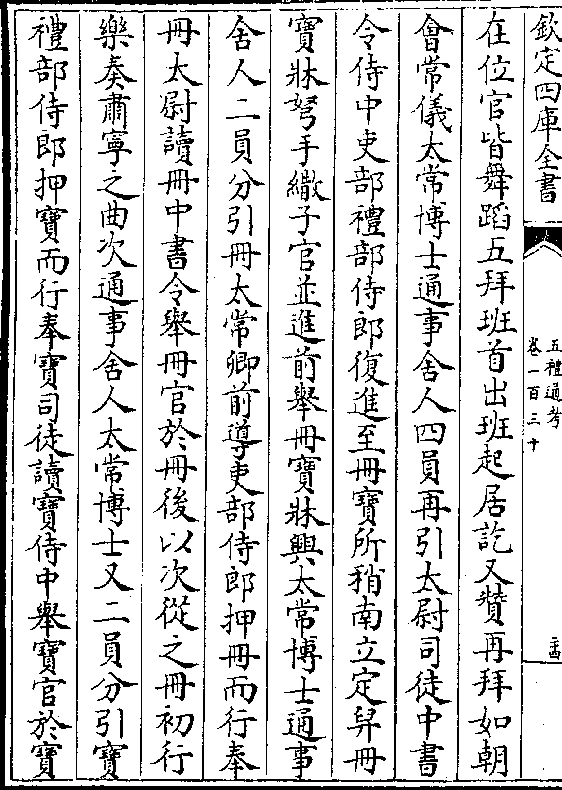 欽定四庫全書
五禮通考
卷一百三十
在位官皆舞蹈五拜班首出班起居訖又贊再拜如朝
會常儀太常博士通事舍人四員再引太尉司徒中書
令侍中吏部禮部侍郎復進至冊寶所稍南立定舁冊
寶牀弩手繖子官並進前舉冊寶牀興太常博士通事
舍人二員分引冊太常卿前導吏部侍郎押冊而行奉
冊太尉讀冊中書令舉冊官於冊後以次從之冊初行
樂奏肅寧之曲次通事舍人太常博士又二員分引寶
禮部侍郎押寶而行奉寶司徒讀寶侍中舉寶官於寶